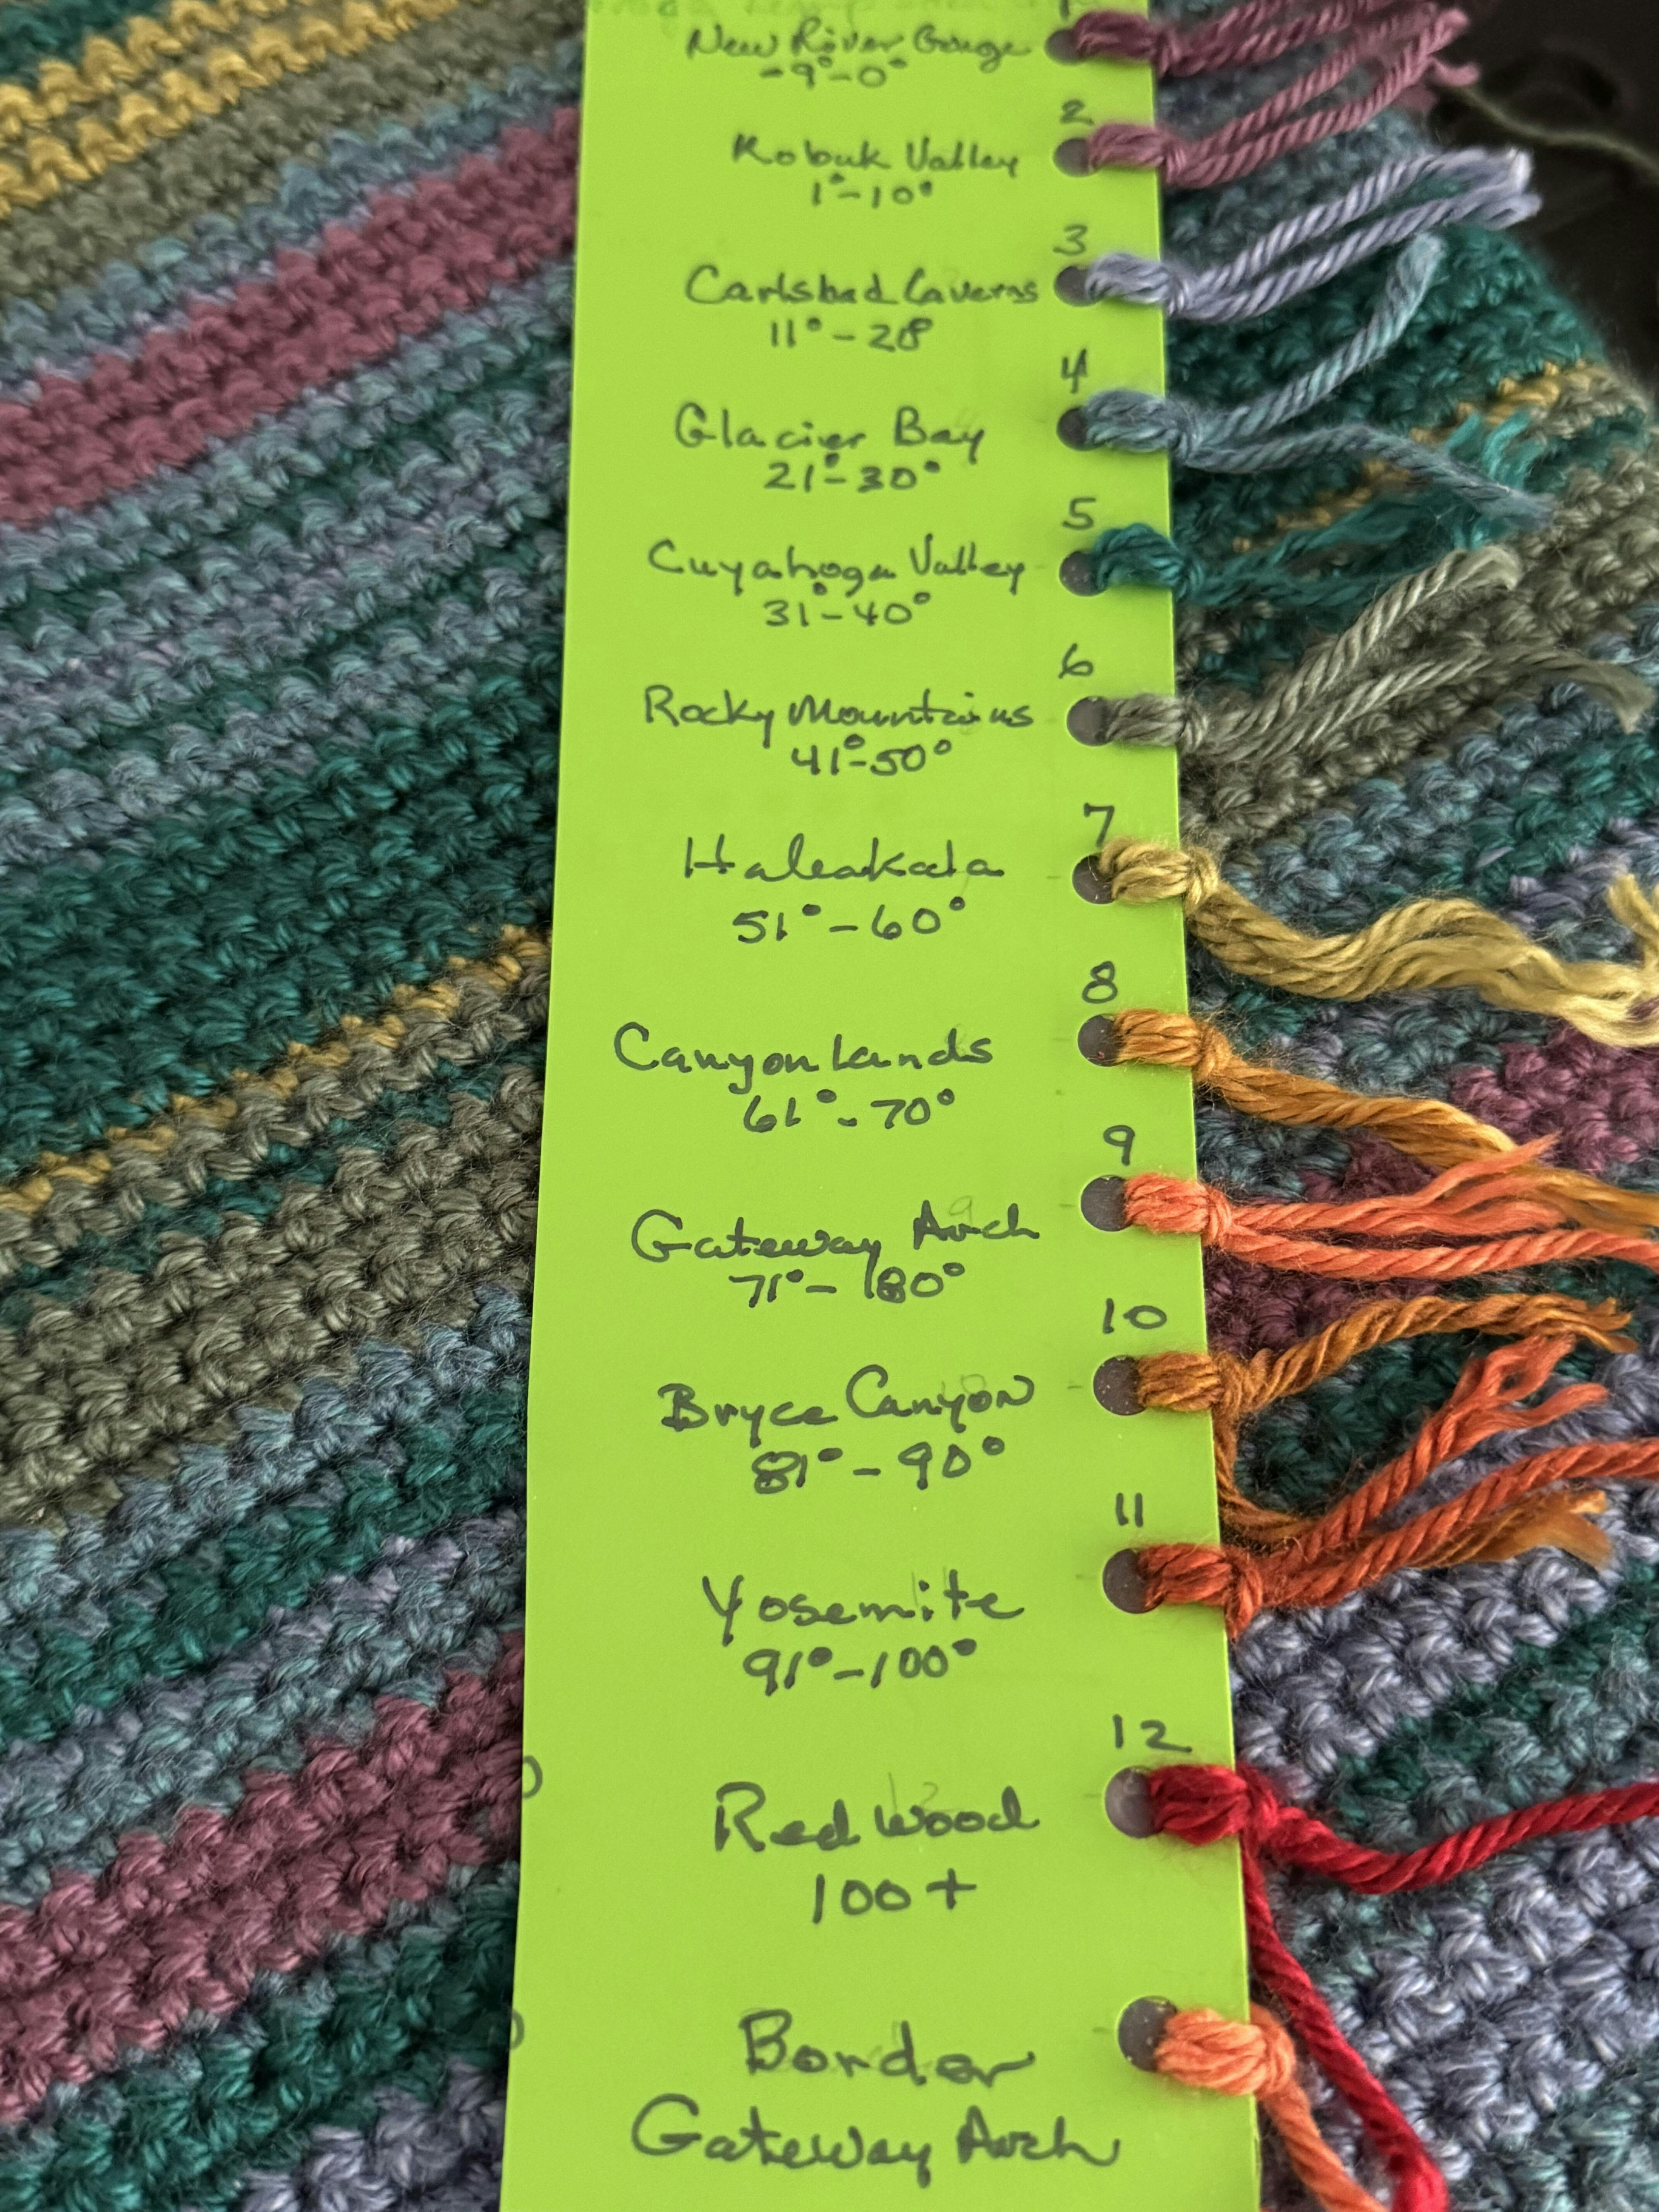 1
New River Gorge
-9°-0°
2
Kobuk Valley
1°-10°
3
Carlsbad Caverns
11°-20°
4
Glacier Bay
21°-30°
5
Cuyahoga Valley
31°-40°
6
Rocky Mountains
41°-50°
7
Haleakala
51°-60°
8
Canyon Lands
61°-70°
9
Gateway Arch
71°-80°
10
Bryce Canyon
81°-90°
11
Yosemite
91°-100°
12
Red Wood
100+
Border
Gateway Arch